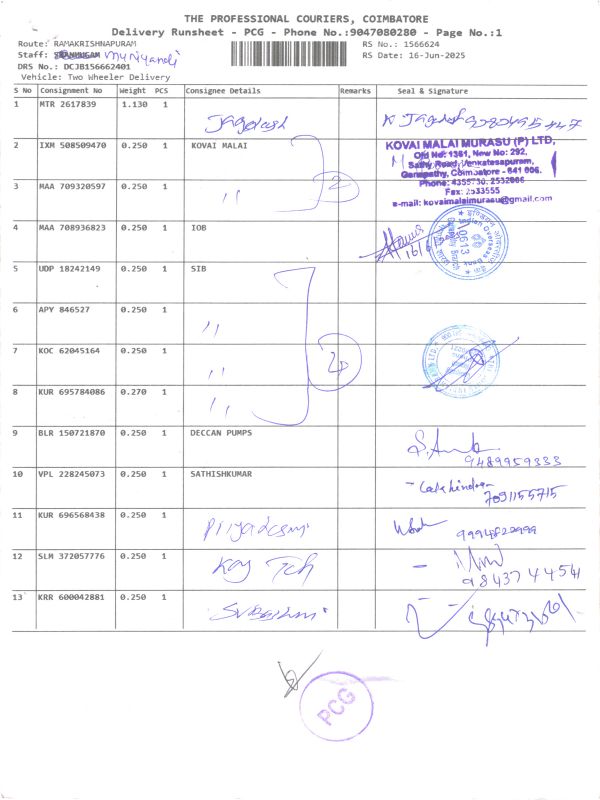 THE PROFESSIONAL COURIERS, COIMBATORE
Delivery Runsheet - PCG - Phone No.:9047080280 - Page No.:1
Route: RAMAKRISHNAPURAM RS No.: 1566624
Staff: Muniyandi RS Date: 16-Jun-2025
DRS No.: DCJB156662401
Vehicle: Two Wheeler Delivery
S No Consignment No Weight PCS Consignee Details Remarks Seal & Signature
1 MTR 2617839 1.130 1 Jagadesh K Jagadesh
2 IXM 508509470 0.250 1 KOVAI MALAI
KOVAI MALAI MURASU (P) LTD,
Old No: 1361, New No: 292,
Sathy Road, Venkatesapuram,
Ganapathy, Coimbatore - 641 006.
Fax: 2533555
e-mail: kovaimalaimurasu@gmail.com
3 MAA 709320597 0.250 1 " 2
4 MAA 708936823 0.250 1 IOB 16/6
Indian Overseas Bank
0613
5 UDP 18242149 0.250 1 SIB
6 APY 846527 0.250 1 "
7 KOC 62045164 0.250 1 " 4
8 KUR 695784086 0.270 1 "
9 BLR 150721870 0.250 1 DECCAN PUMPS
9489959333
10 VPL 228245073 0.250 1 SATHISHKUMAR
7091155715
11 KUR 696568438 0.250 1 Priyadesmi
12 SLM 372057776 0.250 1
9843744454
13 KRR 600042881 0.250 1
PCG